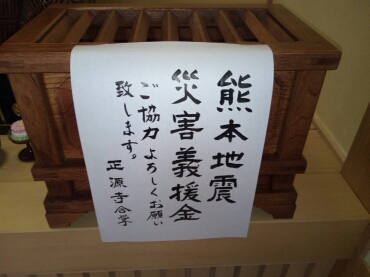 熊本地震
災害義援金
ご協力よろしくお願い
致します。
正源寺合掌